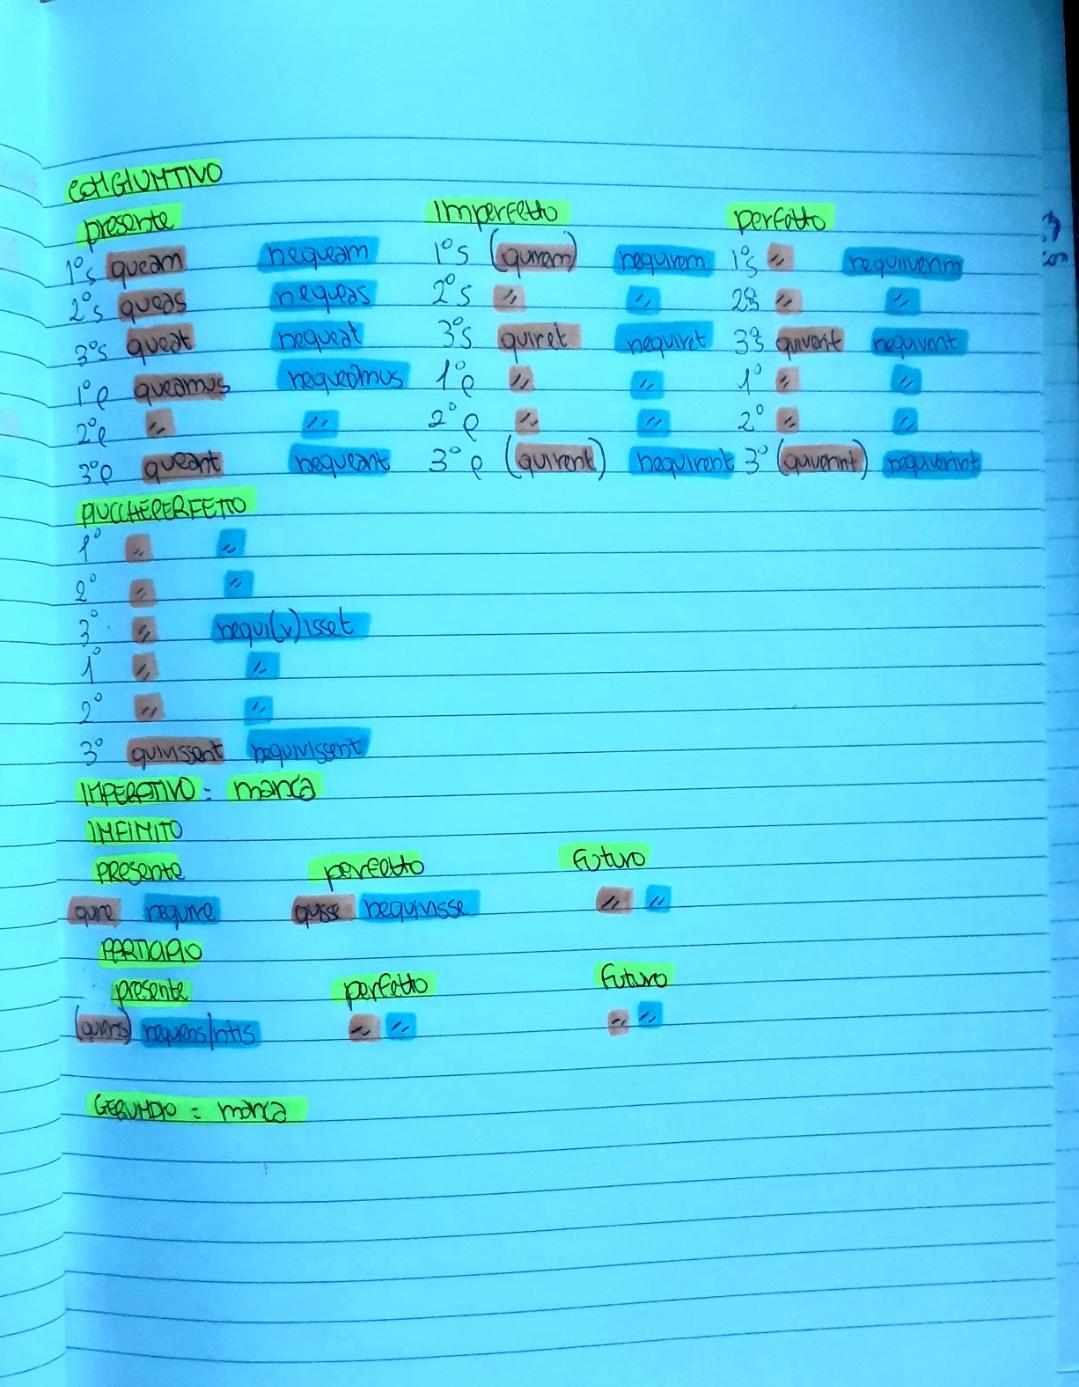 CONGIUNTIVO
presente Imperfetto perfetto
1°s queam nequeam 1°s (quirem) nequirem 1°s // nequiverim
2°s queas nequeas 2°s // // 2°s // //
3°s queat nequeat 3°s quiret nequiret 3°s quiverit nequiverit
1°p queamus nequeamus 1°p // // 1° // //
2°p // // 2°p // // 2° // //
3°p queant nequeant 3°p (quirent) nequirent 3° (quiverint) nequiverint
PIUCCHEPERFETTO
1° // //
2° // //
3° // nequi(v)isset
1° // //
2° // //
3° quivissent nequivissent
IMPERATIVO: manca
INFINITO
PRESENTE perfetto futuro
quire nequire quisse nequivisse // //
PARTICIPIO
presente perfetto futuro
(quiens) nequens/ntis // // // //
GERUNDIO = manca